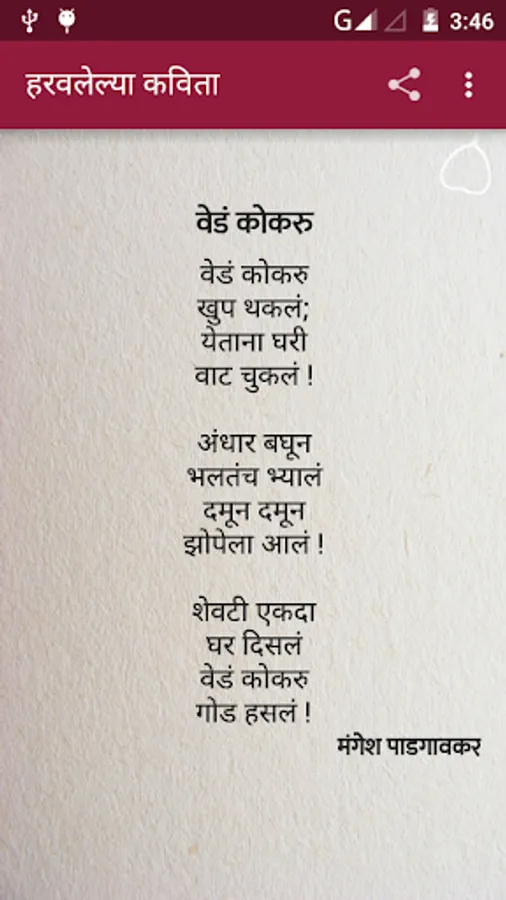 G 3:46
हरवलेल्या कविता
वेडं कोकरु
वेडं कोकरु
खुप थकलं;
येताना घरी
वाट चुकलं !
अंधार बघून
भलतंच भ्यालं
दमून दमून
झोपेला आलं !
शेवटी एकदा
घर दिसलं
वेडं कोकरु
गोड हसलं !
मंगेश पाडगावकर